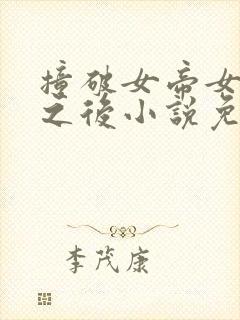 撞破女帝女
之後小說免
李茂康